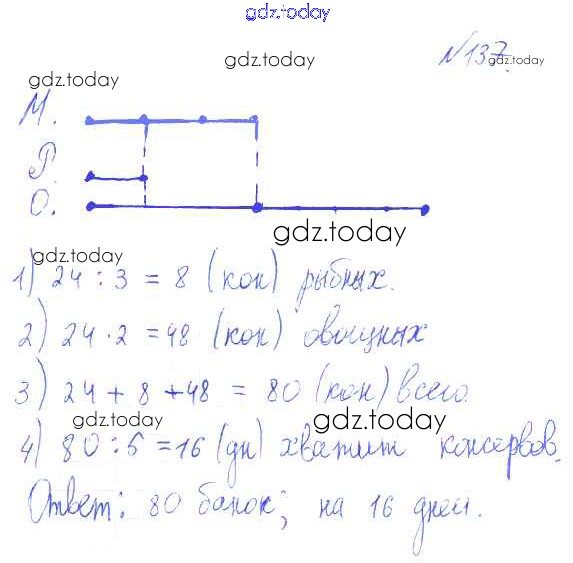 gdz.today
gdz.today №137. gdz.today
gdz.today
М.
Р.
О.
gdz.today
gdz.today
1) 24 : 3 = 8 (кон) рыбных.
2) 24 · 2 = 48 (кон) овощных
3) 24 + 8 + 48 = 80 (кон) всего.
gdz.today gdz.today
4) 80 : 5 = 16 (дн) хватит консервов.
Ответ: 80 банок; на 16 дней.